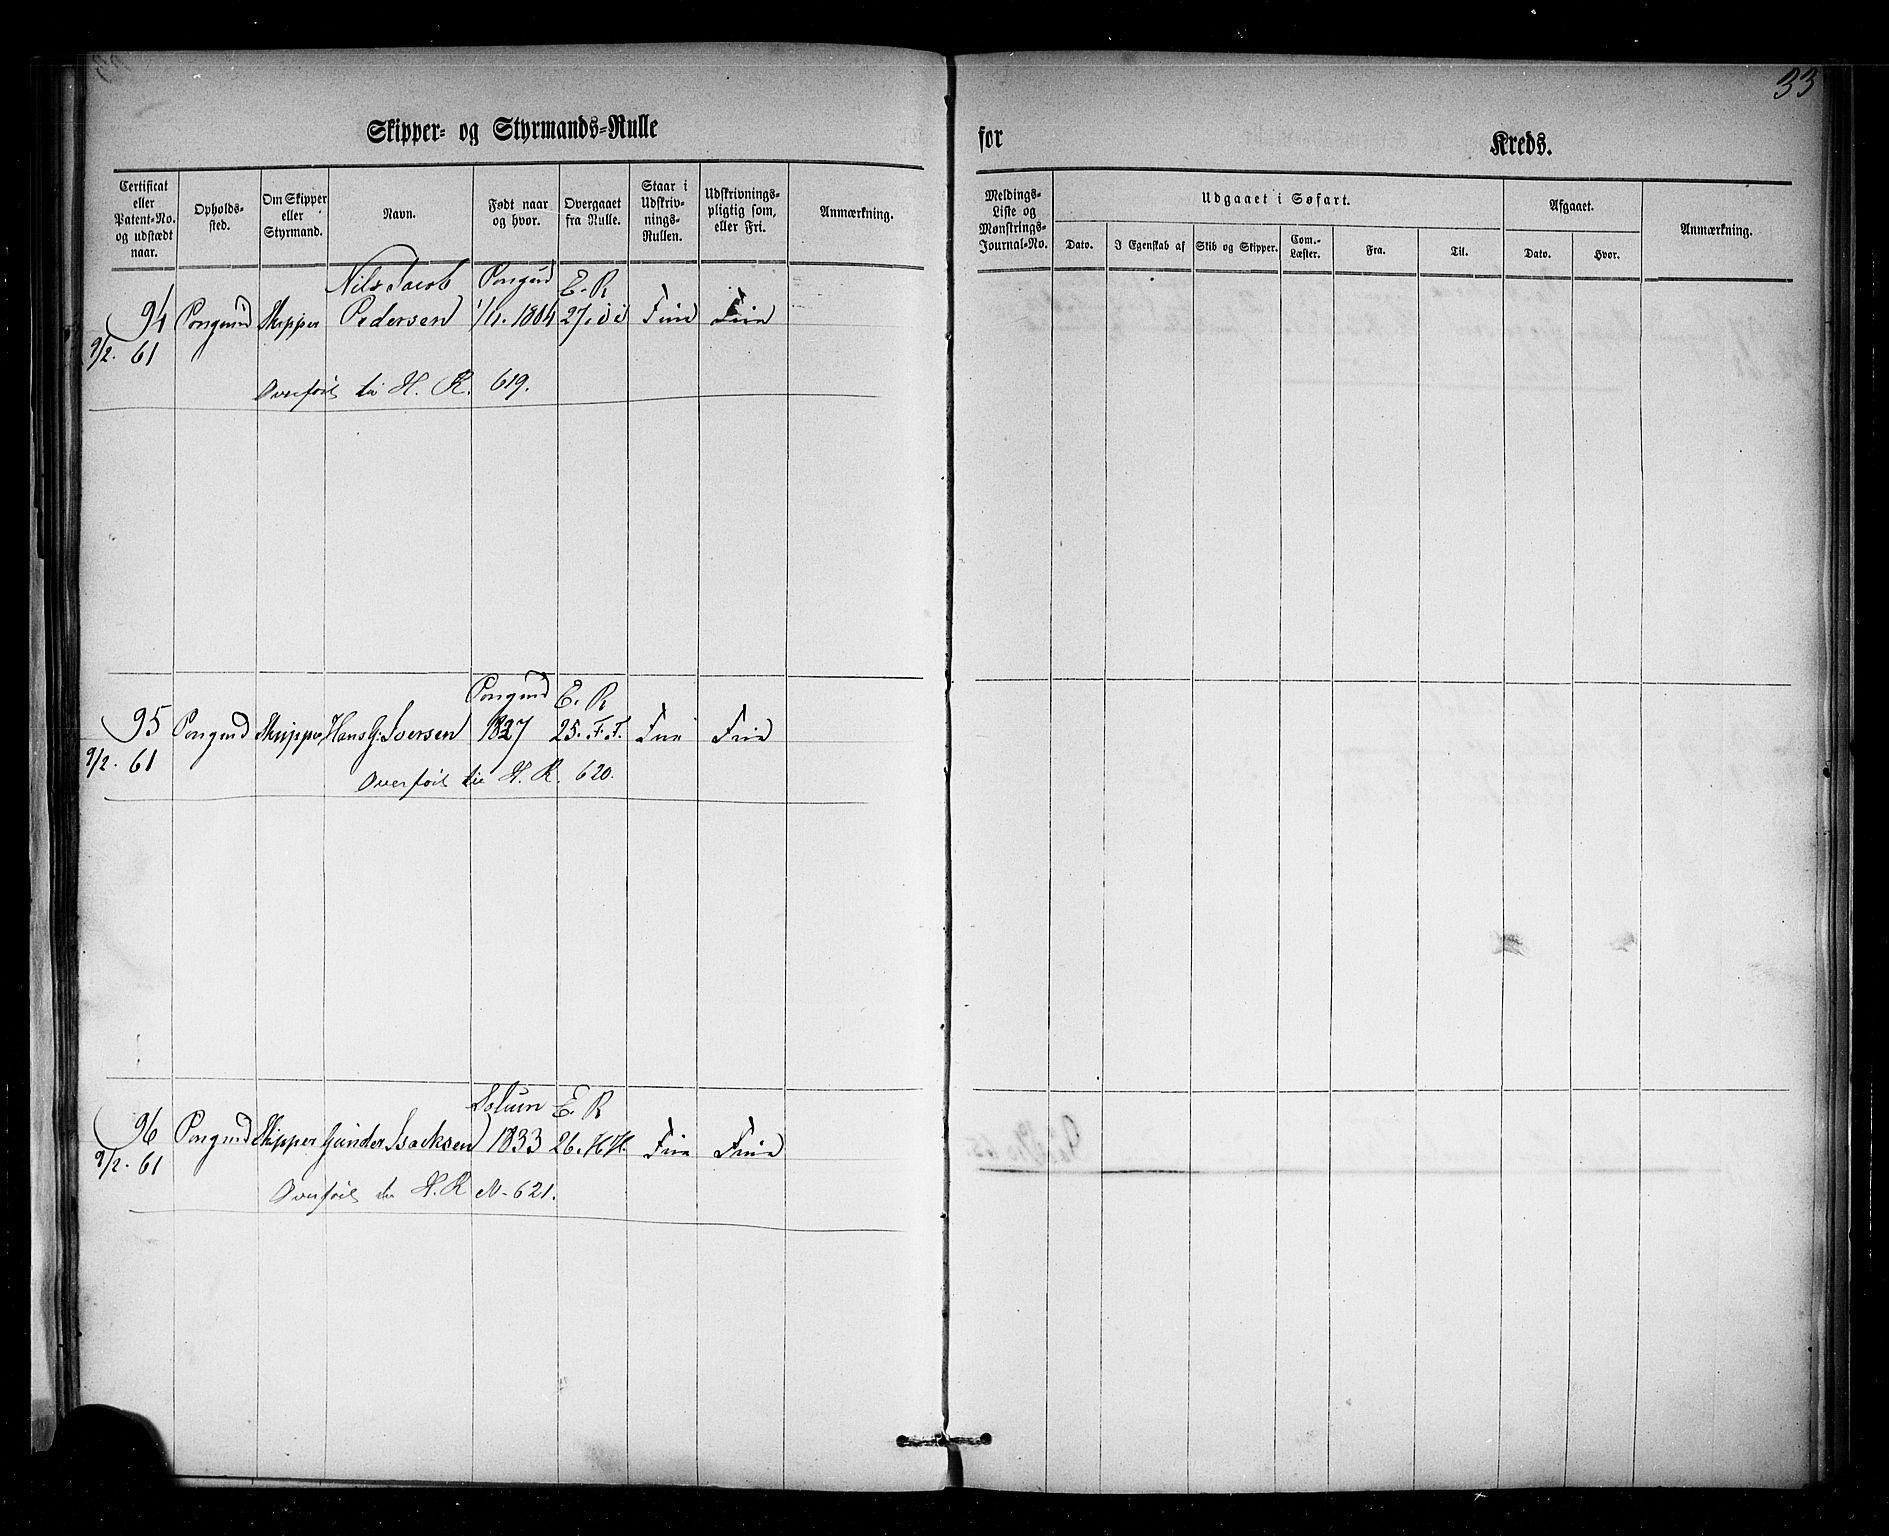 33
Skipper- og Styrmands-Rulle for Kreds.
Certificat eller Patent-No. og udstædt naar.
Opholds-sted.
Om Skipper eller Styrmand.
Navn.
Født naar og hvor.
Overgaaet fra Rulle.
Staar i Udskriv-nings-Rullen.
Udskrivnings-pligtig som, eller Fri.
Anmærkning.
Meldings-Liste og Mønstrings-Journal-No.
Udgaaet i Søfart.
Dato.
I Egenskab af
Skib og Skipper.
Com.-Læster.
Fra.
Til.
Afgaaet.
Dato.
Hvor.
Anmærkning.
Nils Jacob Porsgrd E. R
94 Porsgrund Skipper Pedersen 1804 Frie Frie
9/2. 61
Overført til H. R. 619.
Porsgrd E. R
95 Porsgrund Skipper Hans G. Iversen 1827 25. F. F. Frie Frie
9/2. 61
Overført til H. R. 620.
Solum E. R
96 Porsgrund Skipper Gunder Isacksen 1833 26. H H. Frie Frie
9/2. 61
Overført til H. R N- 621.